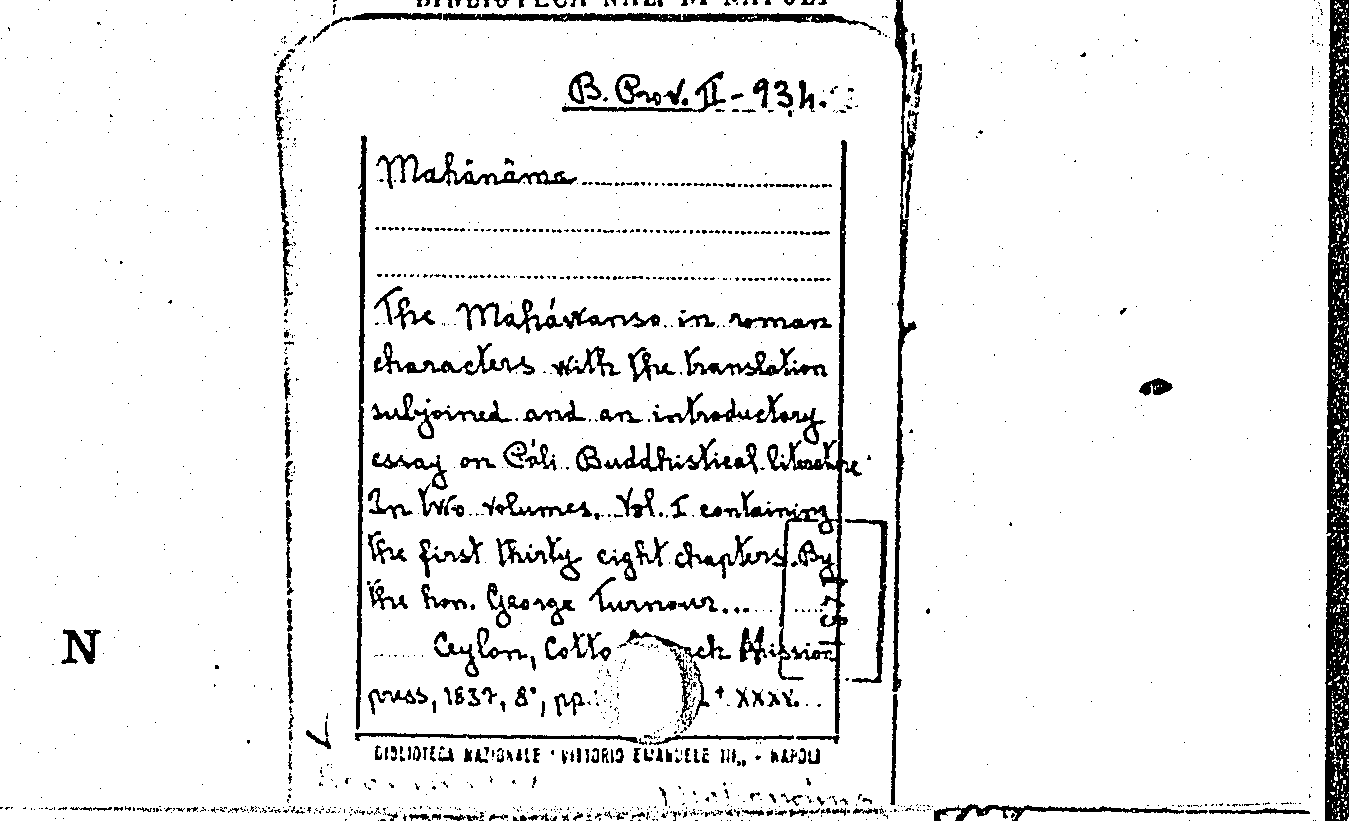 BIBLIOTECA NAZ. DI NAPOLI
B. Prov. II - 934.
Mahânâma
The Maháwanso in roman
characters with the translation
subjoined and an introductory
essay on Páli Buddhistical literature
In two volumes. Vol. I containing
the first thirty eight chapters. By
the hon. George Turnour...
Ceylon, Cotto
Mission
press, 1837, 8°, pp.
XXXV.
BIBLIOTECA NAZIONALE "VITTORIO EMANUELE III„ - NAPOLI
N